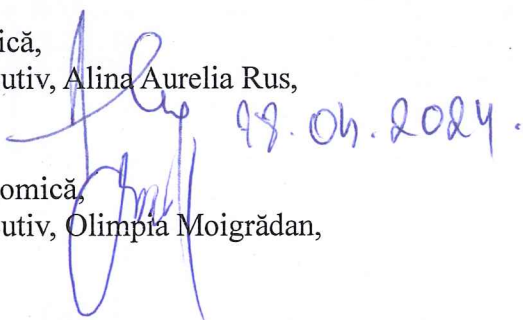 ică,
utiv, Alina Aurelia Rus,
18.04.2024.
omică,
utiv, Olimpia Moigrădan,